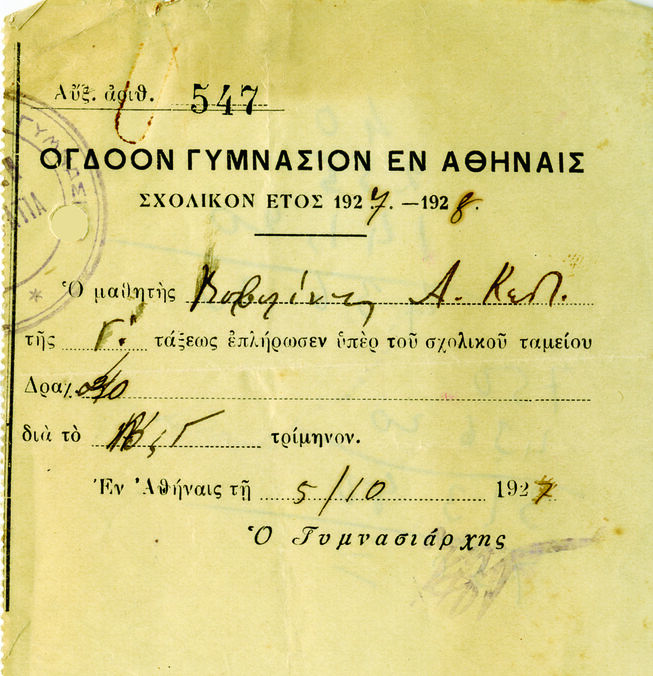 Αὔξ. ἀριθ. 547
ΟΓΔΟΟΝ ΓΥΜΝΑΣΙΟΝ ΕΝ ΑΘΗΝΑΙΣ
ΣΧΟΛΙΚΟΝ ΕΤΟΣ 1927.—1928.
Ὁ μαθητὴς Α.
τῆς Γ΄. τάξεως ἐπλήρωσεν ὑπὲρ τοῦ σχολικοῦ ταμείου
Δραχ.
διὰ τὸ τρίμηνον.
Ἐν Ἀθήναις τῇ 5/10 1927
Ὁ Γυμνασιάρχης